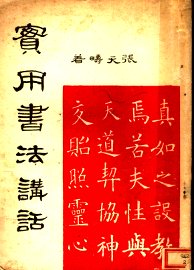 張天疇著
真如之設教
焉若夫性與
天道契協神
交貽照靈心
實用書法講話